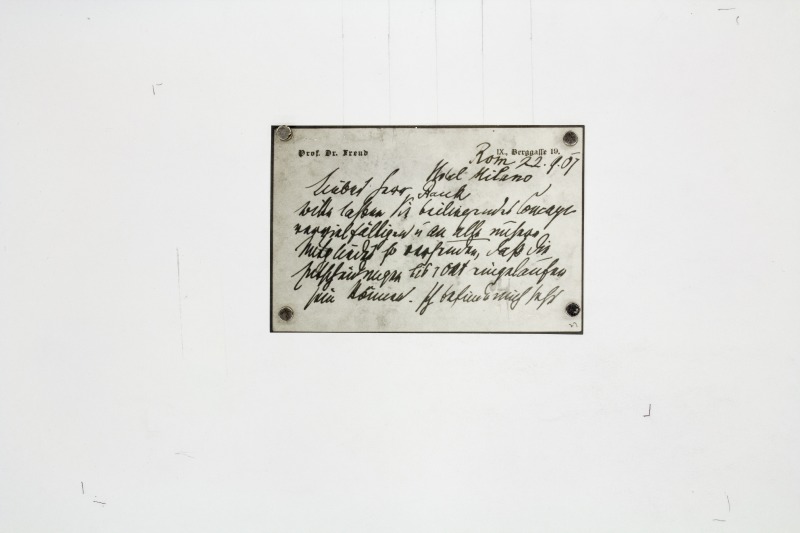 Prof. Dr. Freud
IX., Berggasse 19.
Rom 22.9.07
Hotel Milano
Lieber Herr Rank
Bitte lassen Sie beiliegendes
vervielfältigen u an alle unsere
Mitglieder so versenden, daß die
Entscheidungen bis 1 Okt eingelaufen
sein können. Ich befinde mich sehr